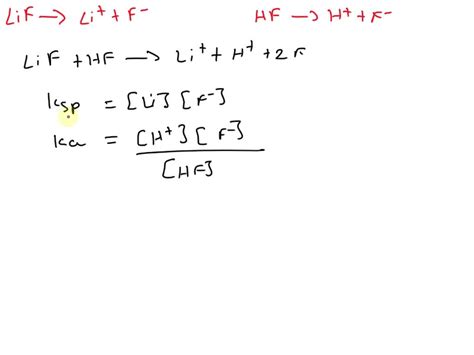 LiF → Li⁺ + F⁻ HF → H⁺ + F⁻
LiF + HF → Li⁺ + H⁺ + 2F
Ksp = [Li] [F⁻]
Ka = [H⁺] [F⁻]
[HF]